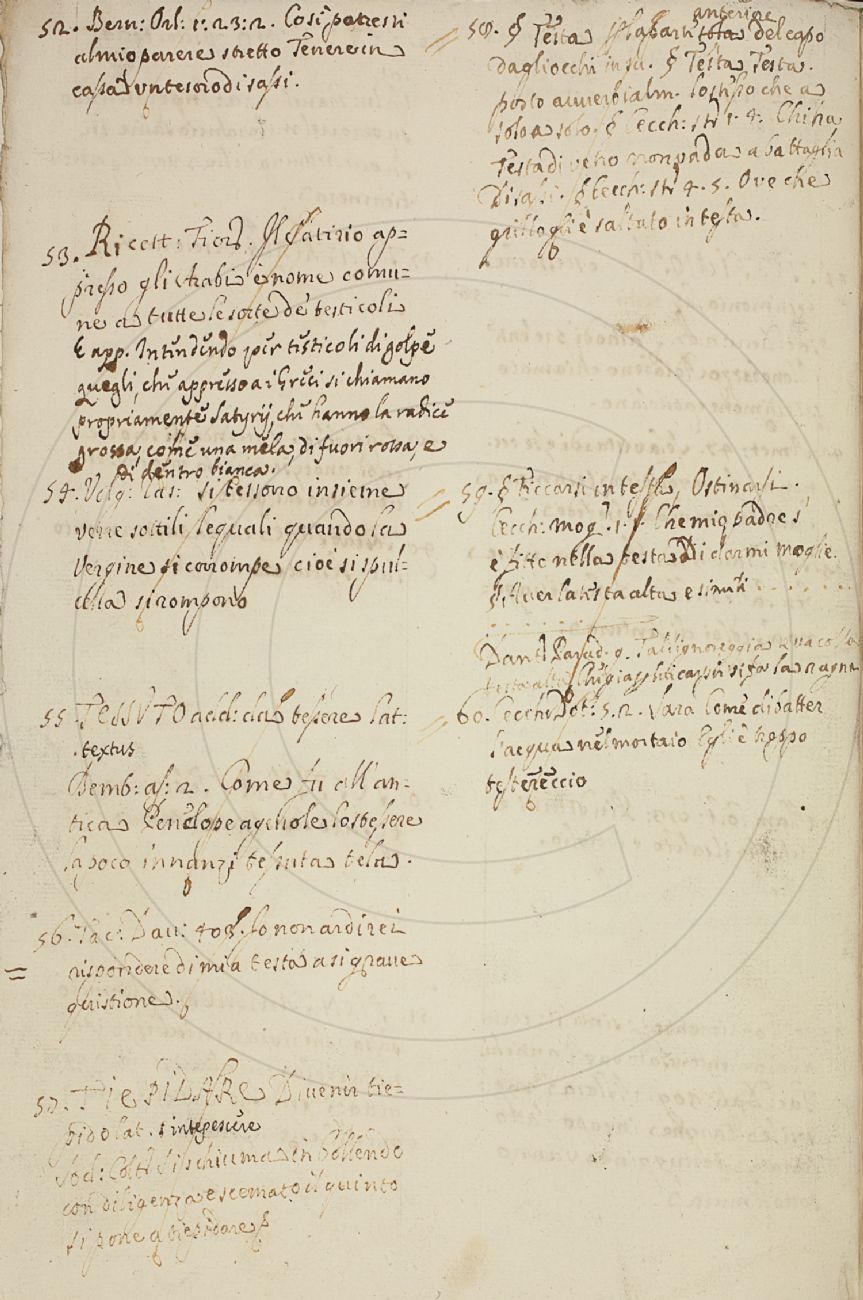 52. Bern: Orl: 1: 23: 2. Così potresti
al mio parere stretto Tenere in
cassa un tesoro di sassi.
53. Ricett: Fior. Il Satirio ap=
presso gli Arabi è nome comu=
ne a tutte le sorte de testicoli
E app. Intendendo per testicoli di golpe
quegli, che appresso a i Greci si chiamano
propriamente Satyrij, che hanno la radice
grossa, come una mela, di fuori rossa, e
di dentro bianca.
54. Volg: Ras: si tessono insieme
vene sottili le quali quando la
Vergine si corrompe cioè si spul=
cella si rompono
55 TESSUTO add: da tessere lat:
textus
Bemb: as: 2. Come fu all'an=
tica Penelope agevole lo stessere
la poco innanzi tessuta tela.
56. Tac: Dav: 408. Io non ardirei
rispondere di mia testa a sì grave
quistione.
57. TIEPIDARE Divenir tie=
pido lat. intepescere
Sod: Colt: si schiuma in bollendo
con diligenza e scemato il quinto
si pone a tiepidare
58. § Testa anteriore del capo
dagli occhi in su. § Testa, Testa.
posto avverbialm. lo stesso che a
solo a solo. § Cecch: 1. 4. Chi ha
Testa di vetro non vada a battaglia
Di sassi. § Cecch: 4. 5. Ove che
grillo gli è saltato in testa.
59. § Ficcarsi in testa, Ostinarsi.
Cecch: mogl. 1. 1. Che mio padre s'
è fitto nella testa Di darmi moglie.
§ Aver la testa alta e simili
Dant: Parad. 9. Tal signoreggia e va colla
testa alta Che già per lui carpir si fa la ragna
60. Cecch: Dot: 5. 2. Sarà come dibatter
l'acqua nel mortaio Egli è troppo
testereccio